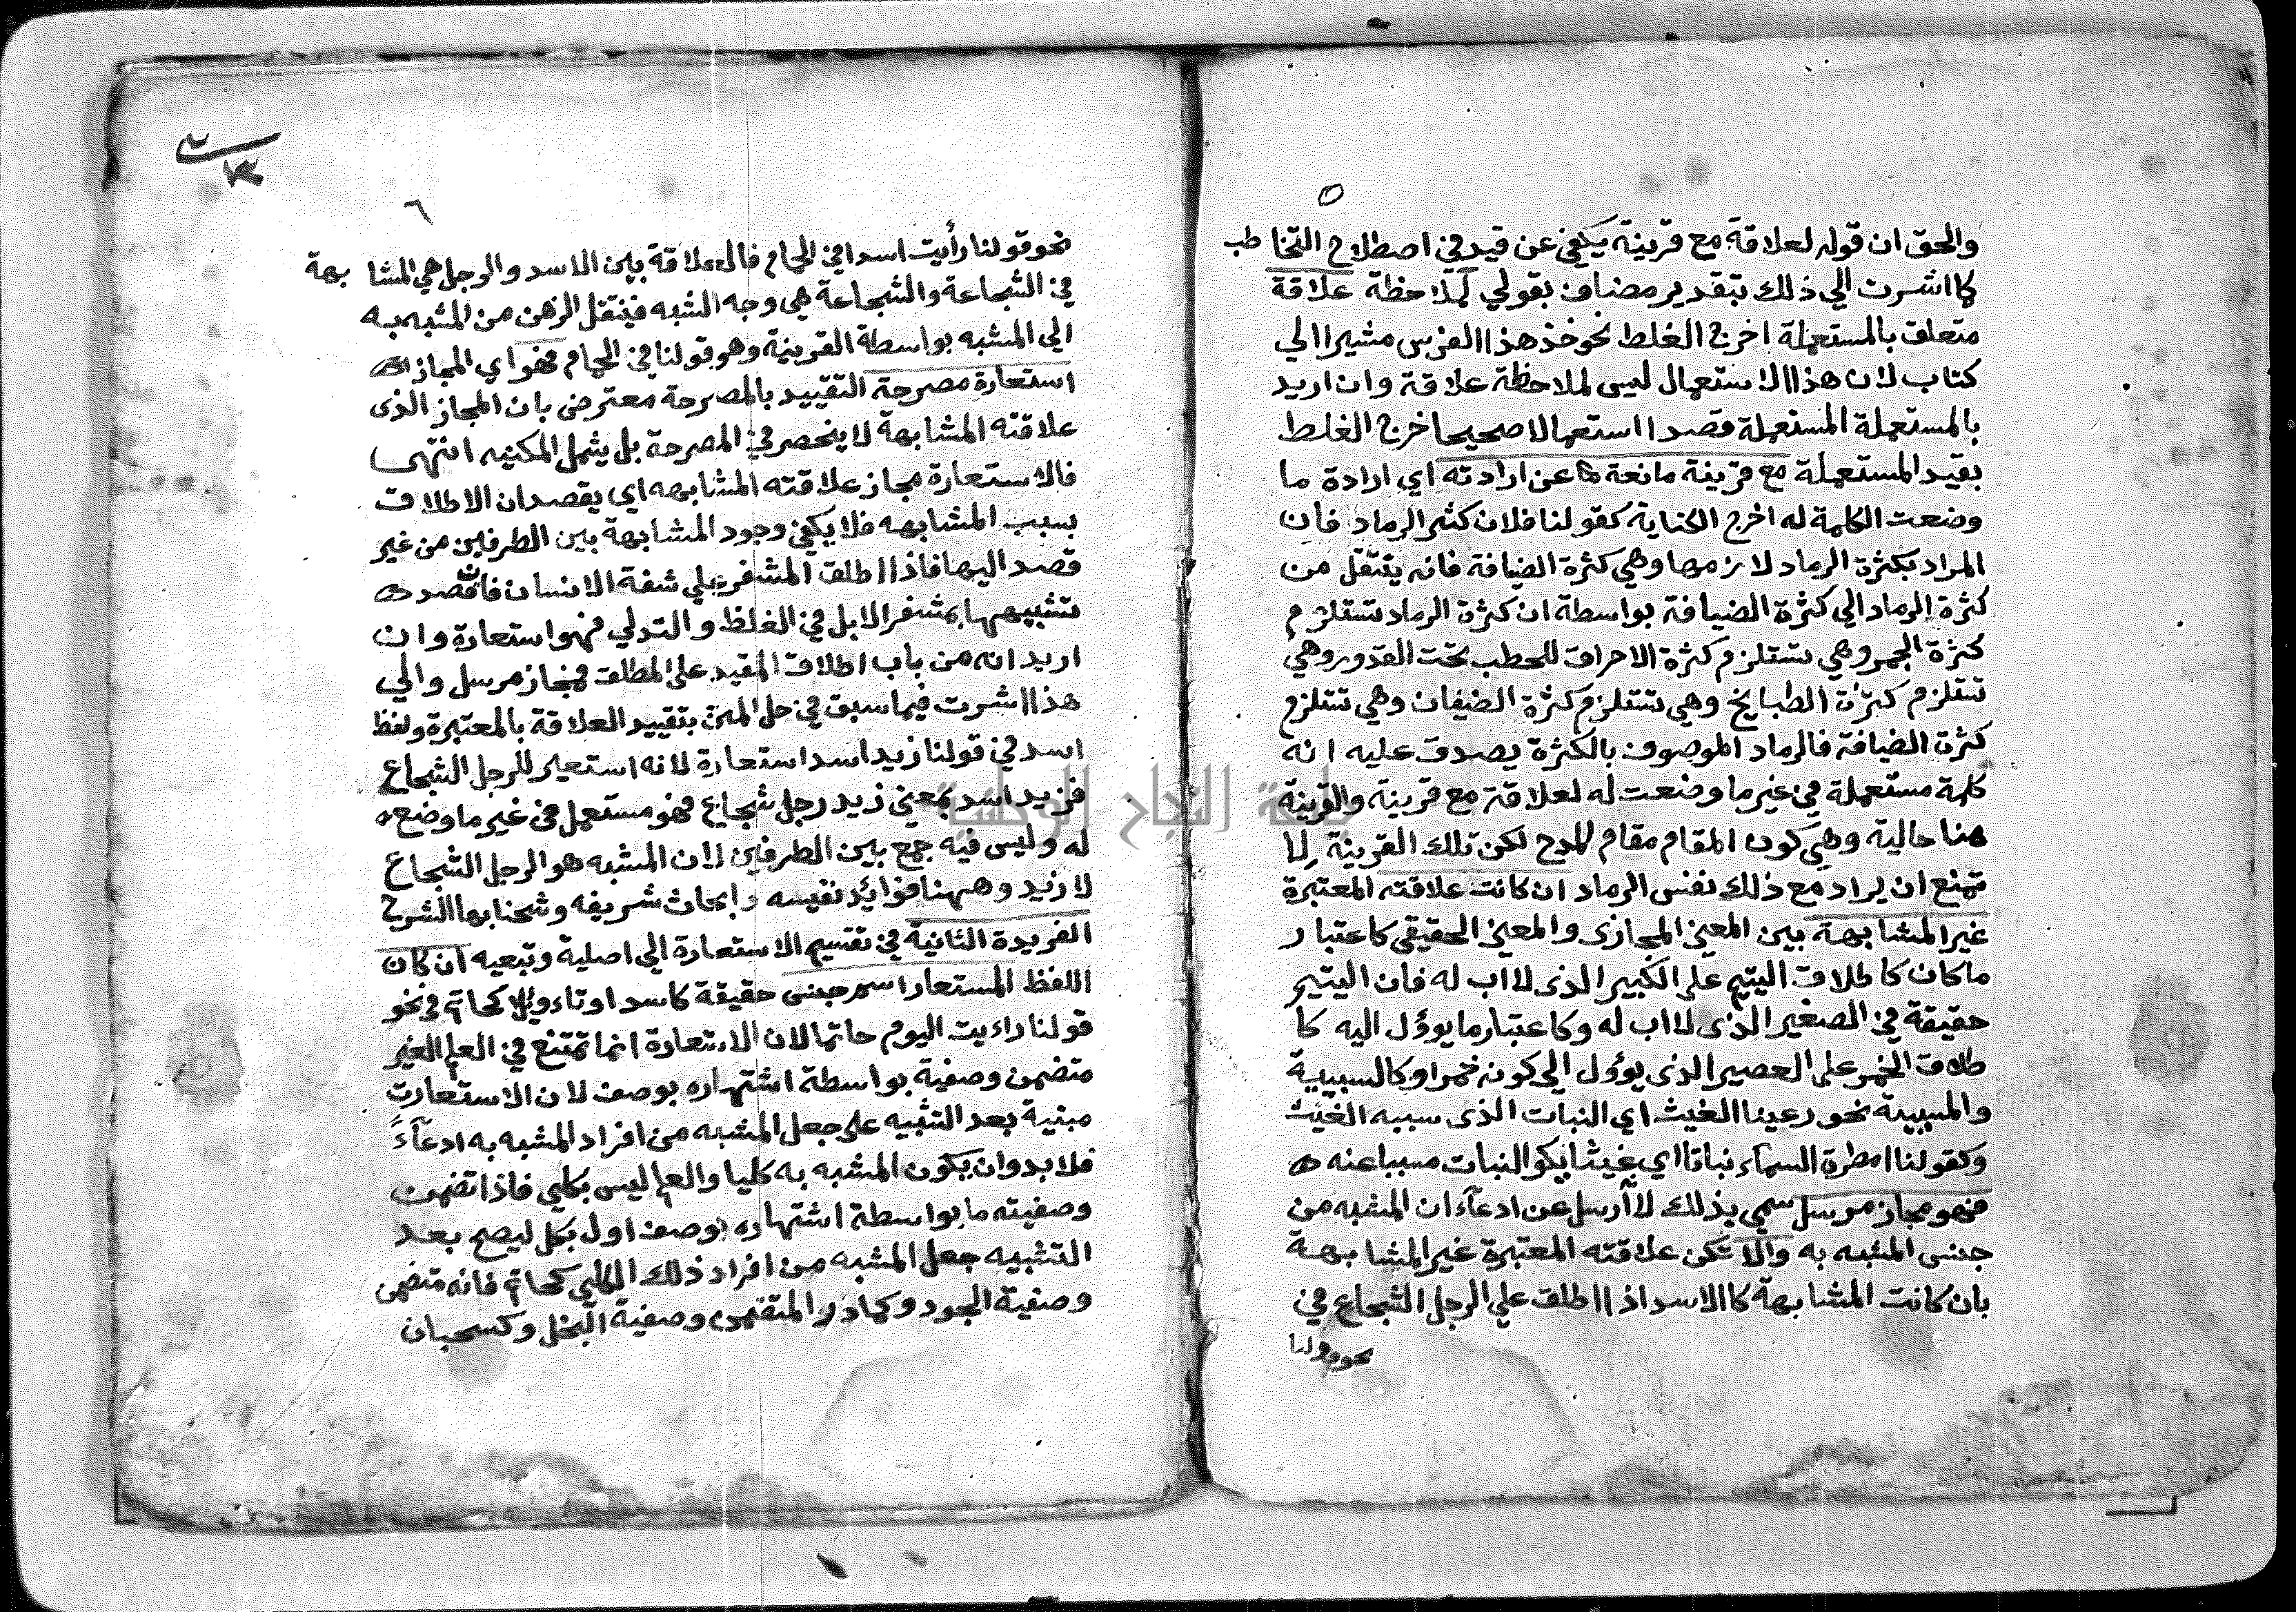 ٥
والحق ان قوله لعلاقة مع قرينة يكفي عن قيد في اصطلاح التخاطب
كما اشرت الي ذلك بتقدير مضاف بقولي لملاحظة علاقة
متعلق بالمستعملة اخرج الغلط نحو خذ هذا الفرس مشيرا الي
كتاب لان هذا الاستعمال ليس لملاحظة علاقة وان اريد
بالمستعملة المستعملة قصدا استعمالا صحيحا خرج الغلط
بقيد المستعملة مع قرينة مانعة عن ارادته اي ارادة ما
وضعت الكلمة له اخرج الكناية كقولنا فلان كثير الرماد فان
المراد بكثرة الرماد لازمها وهي كثرة الضيافة فانه ينتقل من
كثرة الرماد الي كثرة الضيافة بواسطة ان كثرة الرماد تستلزم
كثرة الجمر وهي تستلزم كثرة الاحراق للحطب تحت القدور وهي
تستلزم كثرة الطبايخ وهي تستلزم كثرة الضيفان وهي تستلزم
كثرة الضيافة فالرماد الموصوف بالكثرة يصدق عليه انه
كلمة مستعملة في غير ما وضعت له لعلاقة مع قرينة والقرينة
هنا حالية وهي كون المقام مقام المدح لكن تلك القرينة لا
تمنع ان يراد مع ذلك نفس الرماد ان كانت علاقته المعتبرة
غير المشابهة بين المعني المجازى والمعني الحقيقي كاعتبار
ما كان كاطلاق اليتيم علي الكبير الذى لا اب له فان اليتيم
حقيقة في الصغير الذى لا اب له وكاعتبار ما يوؤل اليه كا
طلاق الخمر علي العصير الذى يوؤل الي كونه خمرا وكالسببية
والمسببية نحو رعينا الغيث اي النبات الذى سببه الغيث
وكقولنا امطرة السماء نباتا اي غيثا يكو النبات مسببا عنه
فهو مجاز مرسل سمي بذلك لا أرسل عن ادعآء ان المشبه من
جنس المشبه به والا تكن علاقته المعتبرة غير المشابهة
بان كانت المشابهة كالاسد اذا اطلق علي الرجل الشجاع في
نحو قولنا
٦
نحو قولنا رأيت اسدا في الحمام فالعلاقة بين الاسد والرجل هي المشابهة
في الشجاعة والشجاعة هي وجه الشبه فينتقل الذهن من المشبه به
الي المشبه بواسطة القرينة وهو قولنا في الحمام فهو اي المجاز
استعارة مصرحة التقييد بالمصرحة معترض بان المجاز الذى
علاقته المشابهة لا ينحصر في المصرحة بل يشمل المكنيه انتهى
فالاستعارة مجاز علاقته المشابهه اي يقصد ان الاطلاق
بسبب المشابهه فلا يكفي وجود المشابهة بين الطرفين من غير
قصد اليها فاذا اطلق المشفر علي شفة الانسان فان قصد
تشبيهها بمشفر الابل في الغلظ والتدلي فهو استعارة وان
اريد انه من باب اطلاق المقيد على المطلق فمجاز مرسل والي
هذا اشرت فيما سبق في حل المتن بتقييد العلاقة بالمعتبرة ولفظ
اسد في قولنا زيد اسد استعارة لانه استعير للرجل الشجاع
فزيد اسد بمعني زيد رجل شجاع فهو مستعمل في غير ما وضع
له وليس فيه جمع بين الطرفين لان المشبه هو الرجل الشجاع
لا زيد وههنا فوائد نفيسه وابحاث شريفه وشحنا بها الشرح
الفريدة الثانية في تقسيم الاستعارة الي اصلية وتبعيه ان كان
اللفظ المستعار اسم جنس حقيقة كاسد او تاءويلا كحاتم في نحو
قولنا راءيت اليوم حاتما لان الاستعارة انما تمتنع في العلم الغير
متضمن وصفية بواسطة اشتهاره بوصف لان الاستعارت
مبنية بعد التشبيه علي جعل المشبه من افراد المشبه به ادعآءً
فلا بد وان يكون المشبه به كليا والعلم ليس بكلي فاذا تضمن
وصفيته ما بواسطة اشتهاره بوصف اول بكل ليصح بعد
التشبيه جعل المشبه من افراد ذلك الكلي كحاتم فانه متضمن
وصفية الجود وكمادر المتضمن وصفية البخل وكسحبان
جامعة النجاح الوطنية